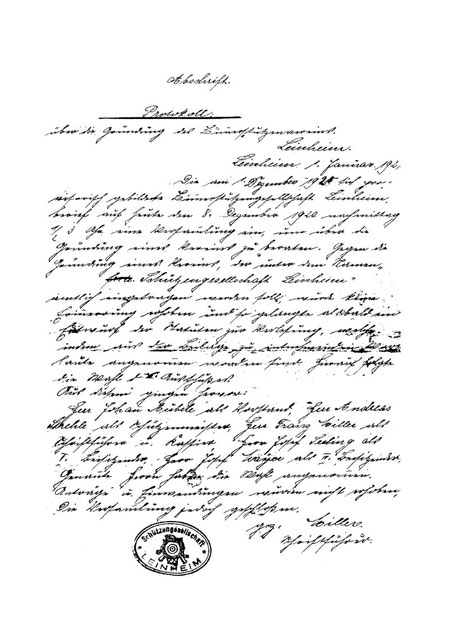 Abschrift.
Protokoll.
über die Gründung des Zimmerstutzenvereins.
Leinheim.
Leinheim 1. Januar, 192
Die am 1 Dezember 1920 sich pro-
visorisch gebildete Zimmerstutzengesellschaft Leinheim,
berief auf heute den 8. Dezember 1920 nachmittag
1/2 3 Uhr eine Versammlung ein, um über die
Gründung eines Vereins zu beraten. Gegen die
Gründung eines Vereins, der unter dem Namen
Schützengesellschaft Leinheim"
amtlich eingetragen werden soll, wurde keine
Erinnerung erhoben und so gelangte alsbald ein
Entwurf der Statuten zur Verlesung, welche
indem aus der Beilage zu Wort-
laute angenommen worden sind. Hierauf folgte
die Wahl des Ausschußes.
Aus diesem gingen hervor:
Herr Johann als Vorstand, Herr Andreas
als Schützenmeister, Herr Franz Miller als
Schriftführer u. Kassier Herr Josef als
I. Beisitzender, Herr Josef als II. Beisitzender.
Genannte Herrn haben die Wahl angenommen.
Anträge u. Einwendungen wurden nicht erhoben,
Die Versammlung jedoch geschloßen.
gez. Miller.
Schriftführer.
Schützengesellschaft
LEINHEIM